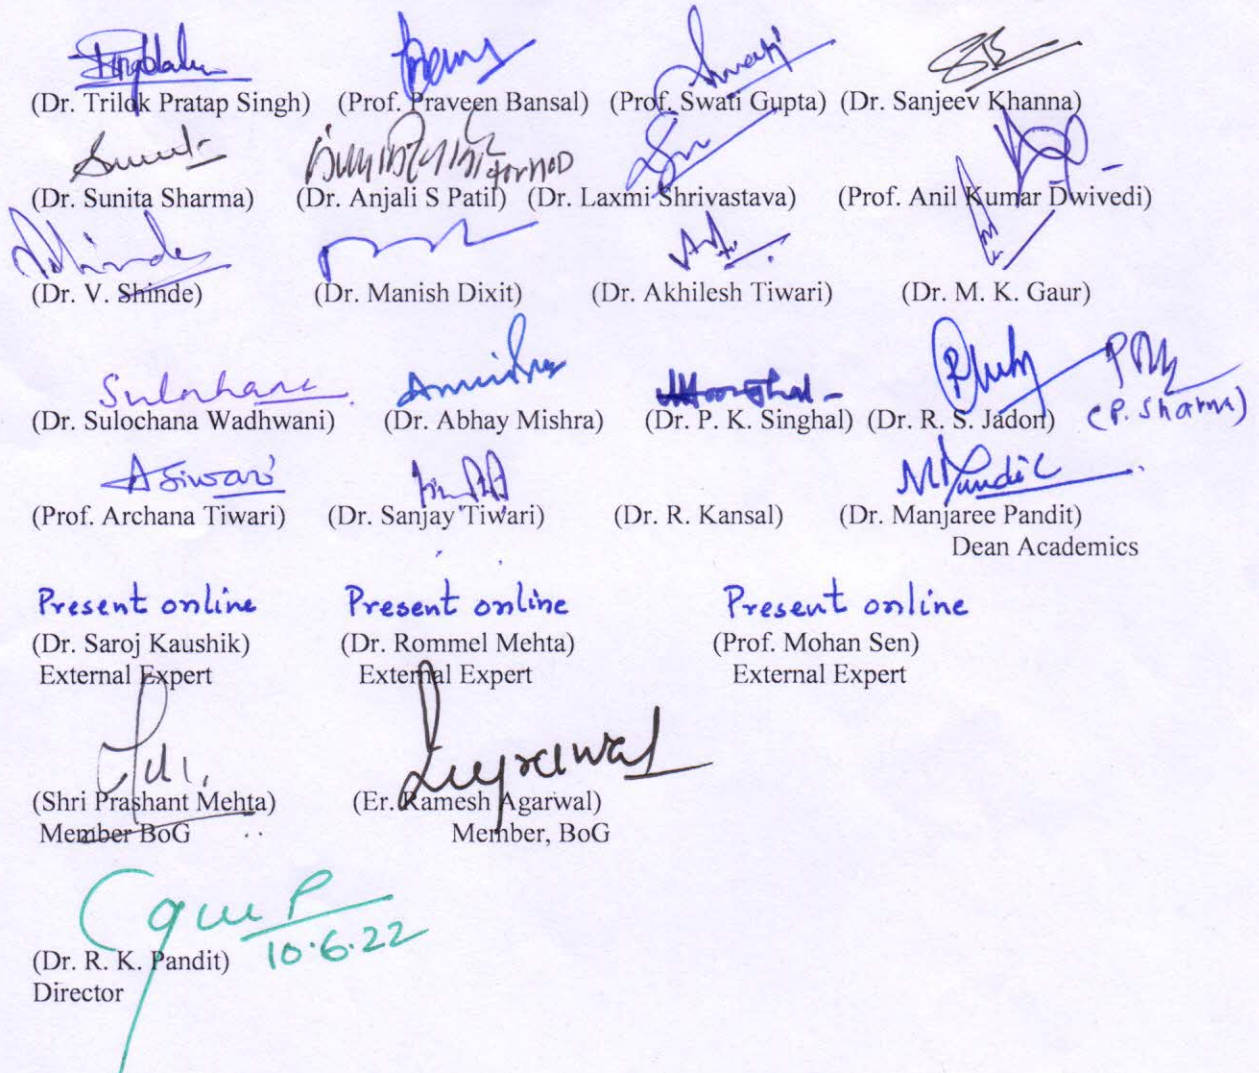 (Dr. Trilok Pratap Singh) (Prof. Praveen Bansal) (Prof. Swati Gupta) (Dr. Sanjeev Khanna)
for HOD
(Dr. Sunita Sharma) (Dr. Anjali S Patil) (Dr. Laxmi Shrivastava) (Prof. Anil Kumar Dwivedi)
(Dr. V. Shinde) (Dr. Manish Dixit) (Dr. Akhilesh Tiwari) (Dr. M. K. Gaur)
Sulochana
(Dr. Sulochana Wadhwani) (Dr. Abhay Mishra) (Dr. P. K. Singhal) (Dr. R. S. Jadon) (P. Sharma)
(Prof. Archana Tiwari) (Dr. Sanjay Tiwari) (Dr. R. Kansal) (Dr. Manjaree Pandit)
Dean Academics
Present online Present online Present online
(Dr. Saroj Kaushik) (Dr. Rommel Mehta) (Prof. Mohan Sen)
External Expert External Expert External Expert
(Shri Prashant Mehta) (Er. Ramesh Agarwal)
Member BoG Member, BoG
10.6.22
(Dr. R. K. Pandit)
Director